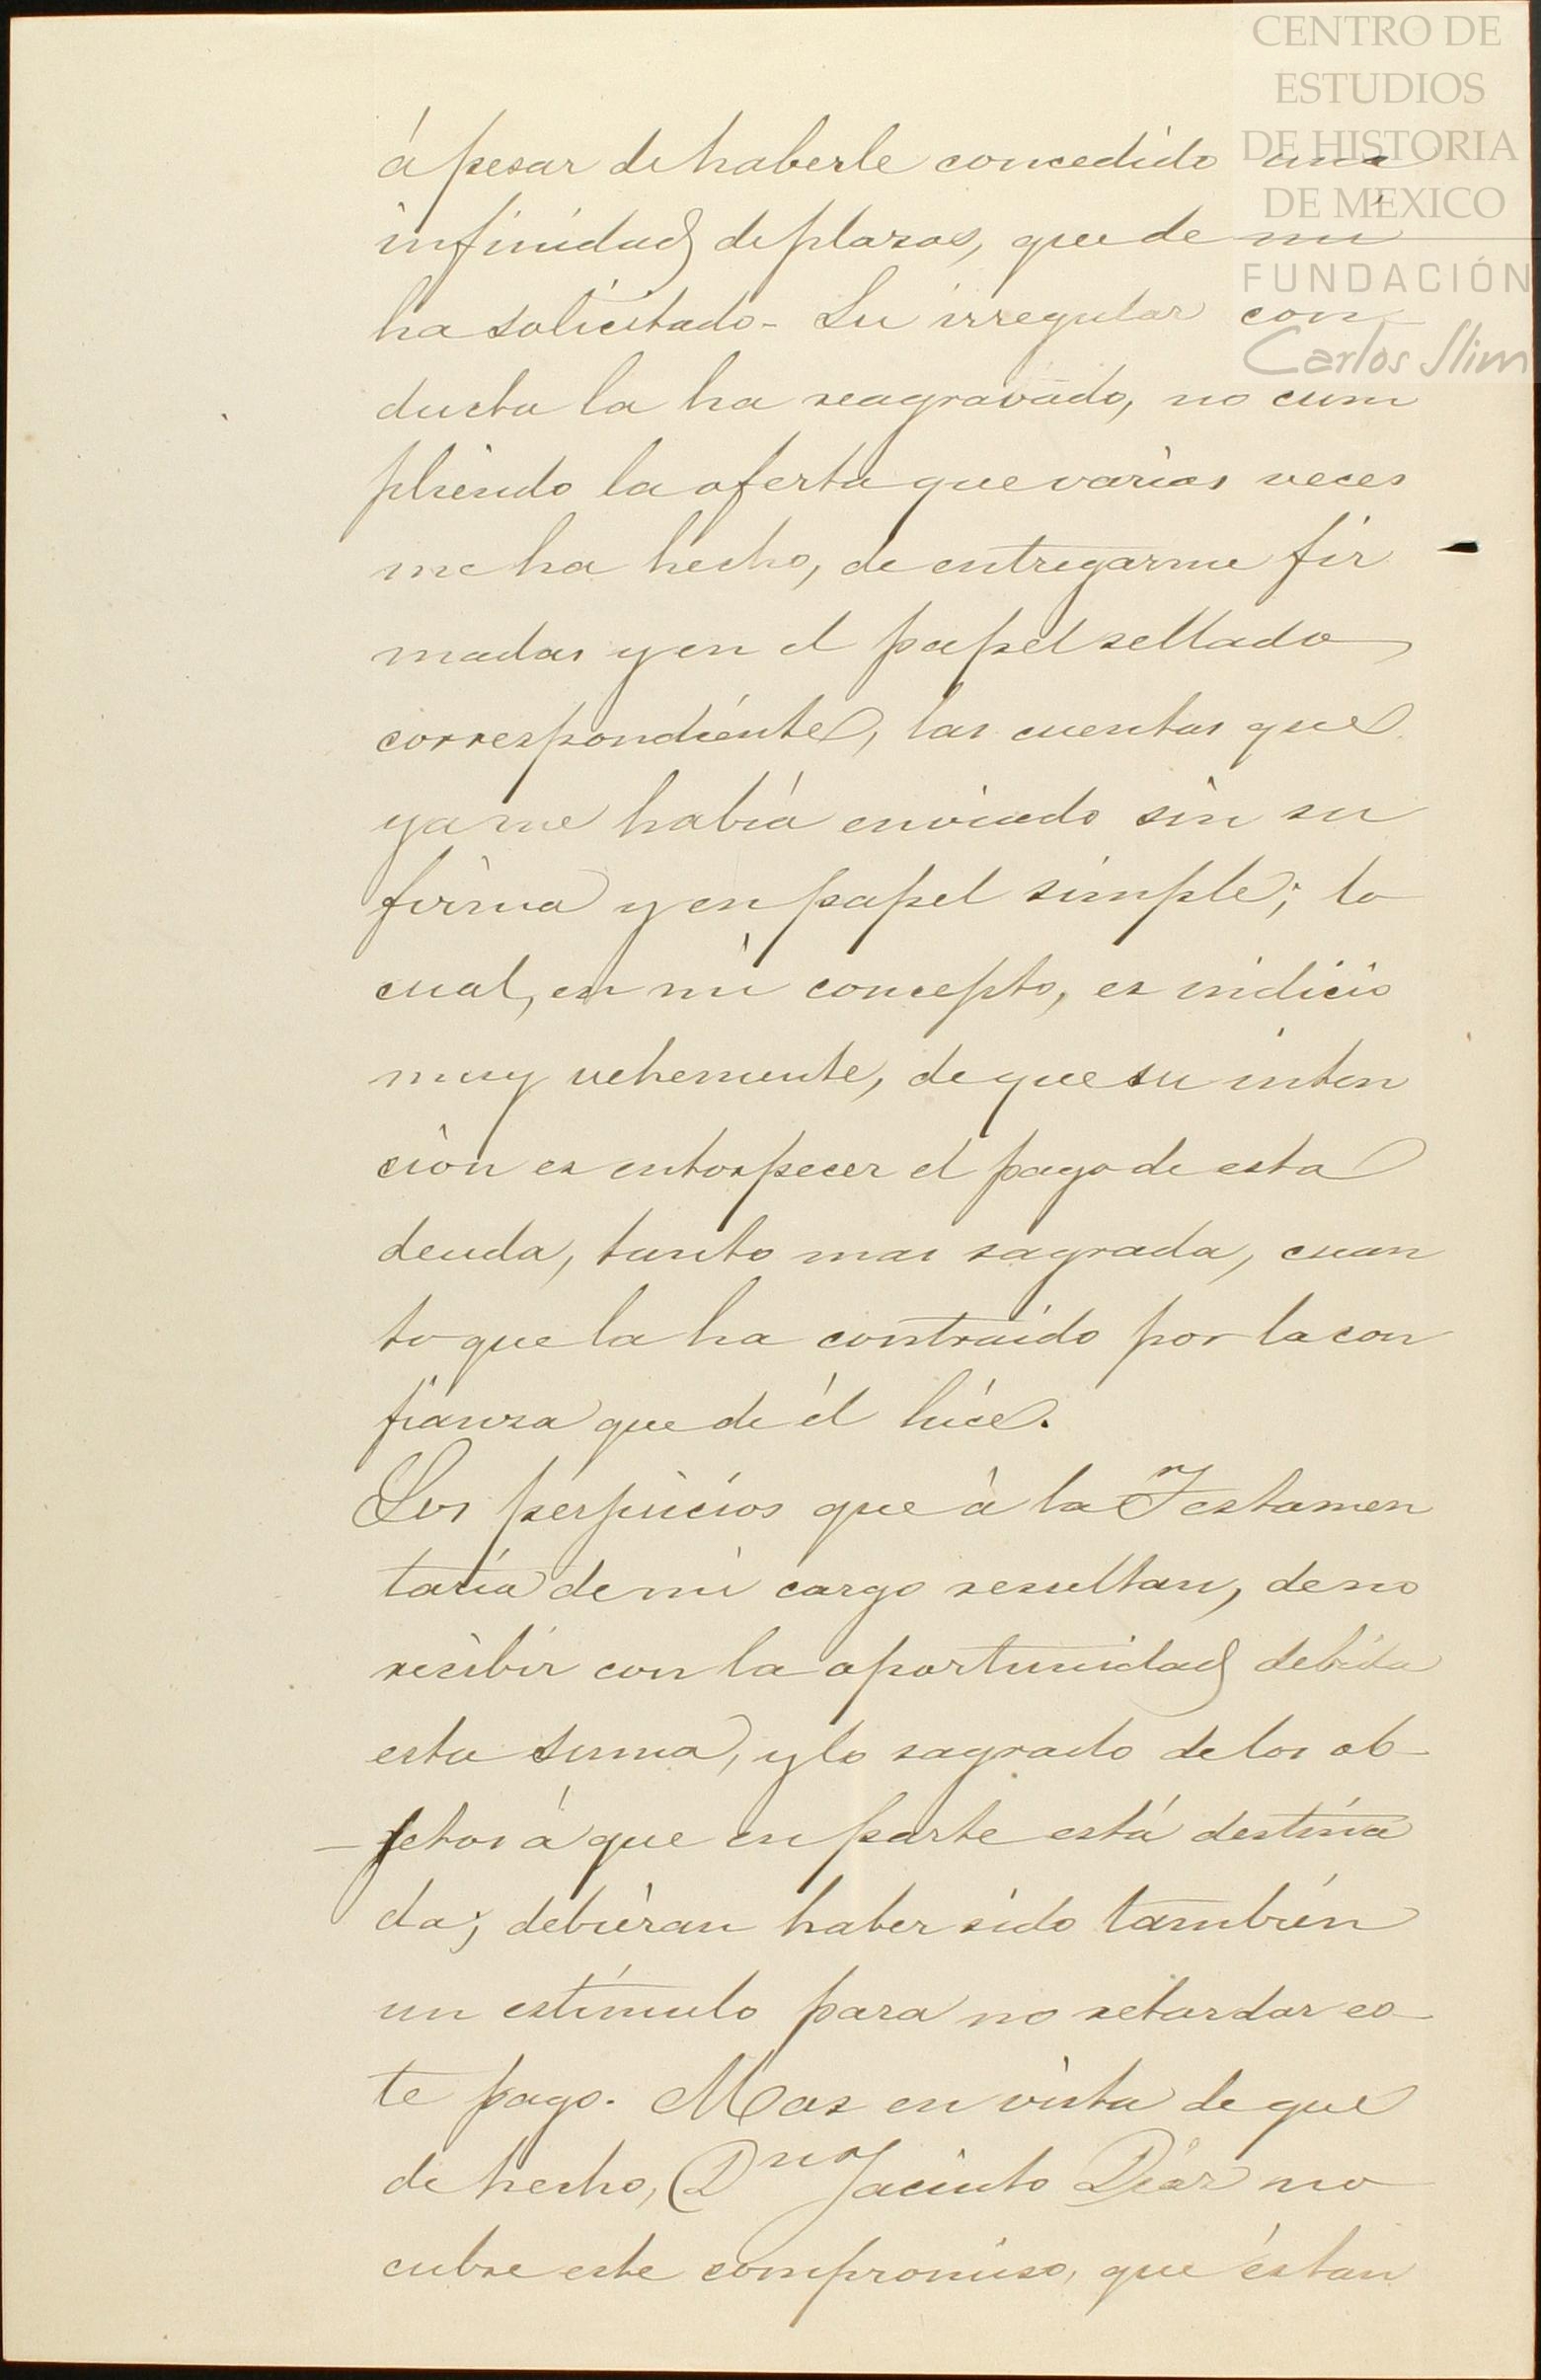 CENTRO DE
ESTUDIOS
DE HISTORIA
DE MÉXICO
FUNDACIÓN
Carlos Slim
á pesar de haberle concedido una
infinidad de plazos, que de mí
ha solicitado. Su irregular con-
ducta la ha reagravado, no cum
pliendo la oferta que varias veces
me ha hecho, de entregarme fir
madas y en el papel sellado
correspondiente, las cuentas que
ya me había enviado sin su
firma y en papel simple; lo
cual, en mi concepto, es indicio
muy vehemente, de que su inten
ción es entorpecer el pago de esta
deuda, tanto mas sagrada, cuan
to que la ha contraido por la con
fianza que de él hice.
Los perjuicios que á la Testamen
taría de mi cargo resultan, de no
recibir con la oportunidad debida
esta suma, y lo sagrado de los ob-
jetos á que en parte está destina
da; debieran haber sido también
un estímulo para no retardar es-
te pago. Mas en vista de que
de hecho, Dn Jacinto Díaz no
cubre este compromiso, que están